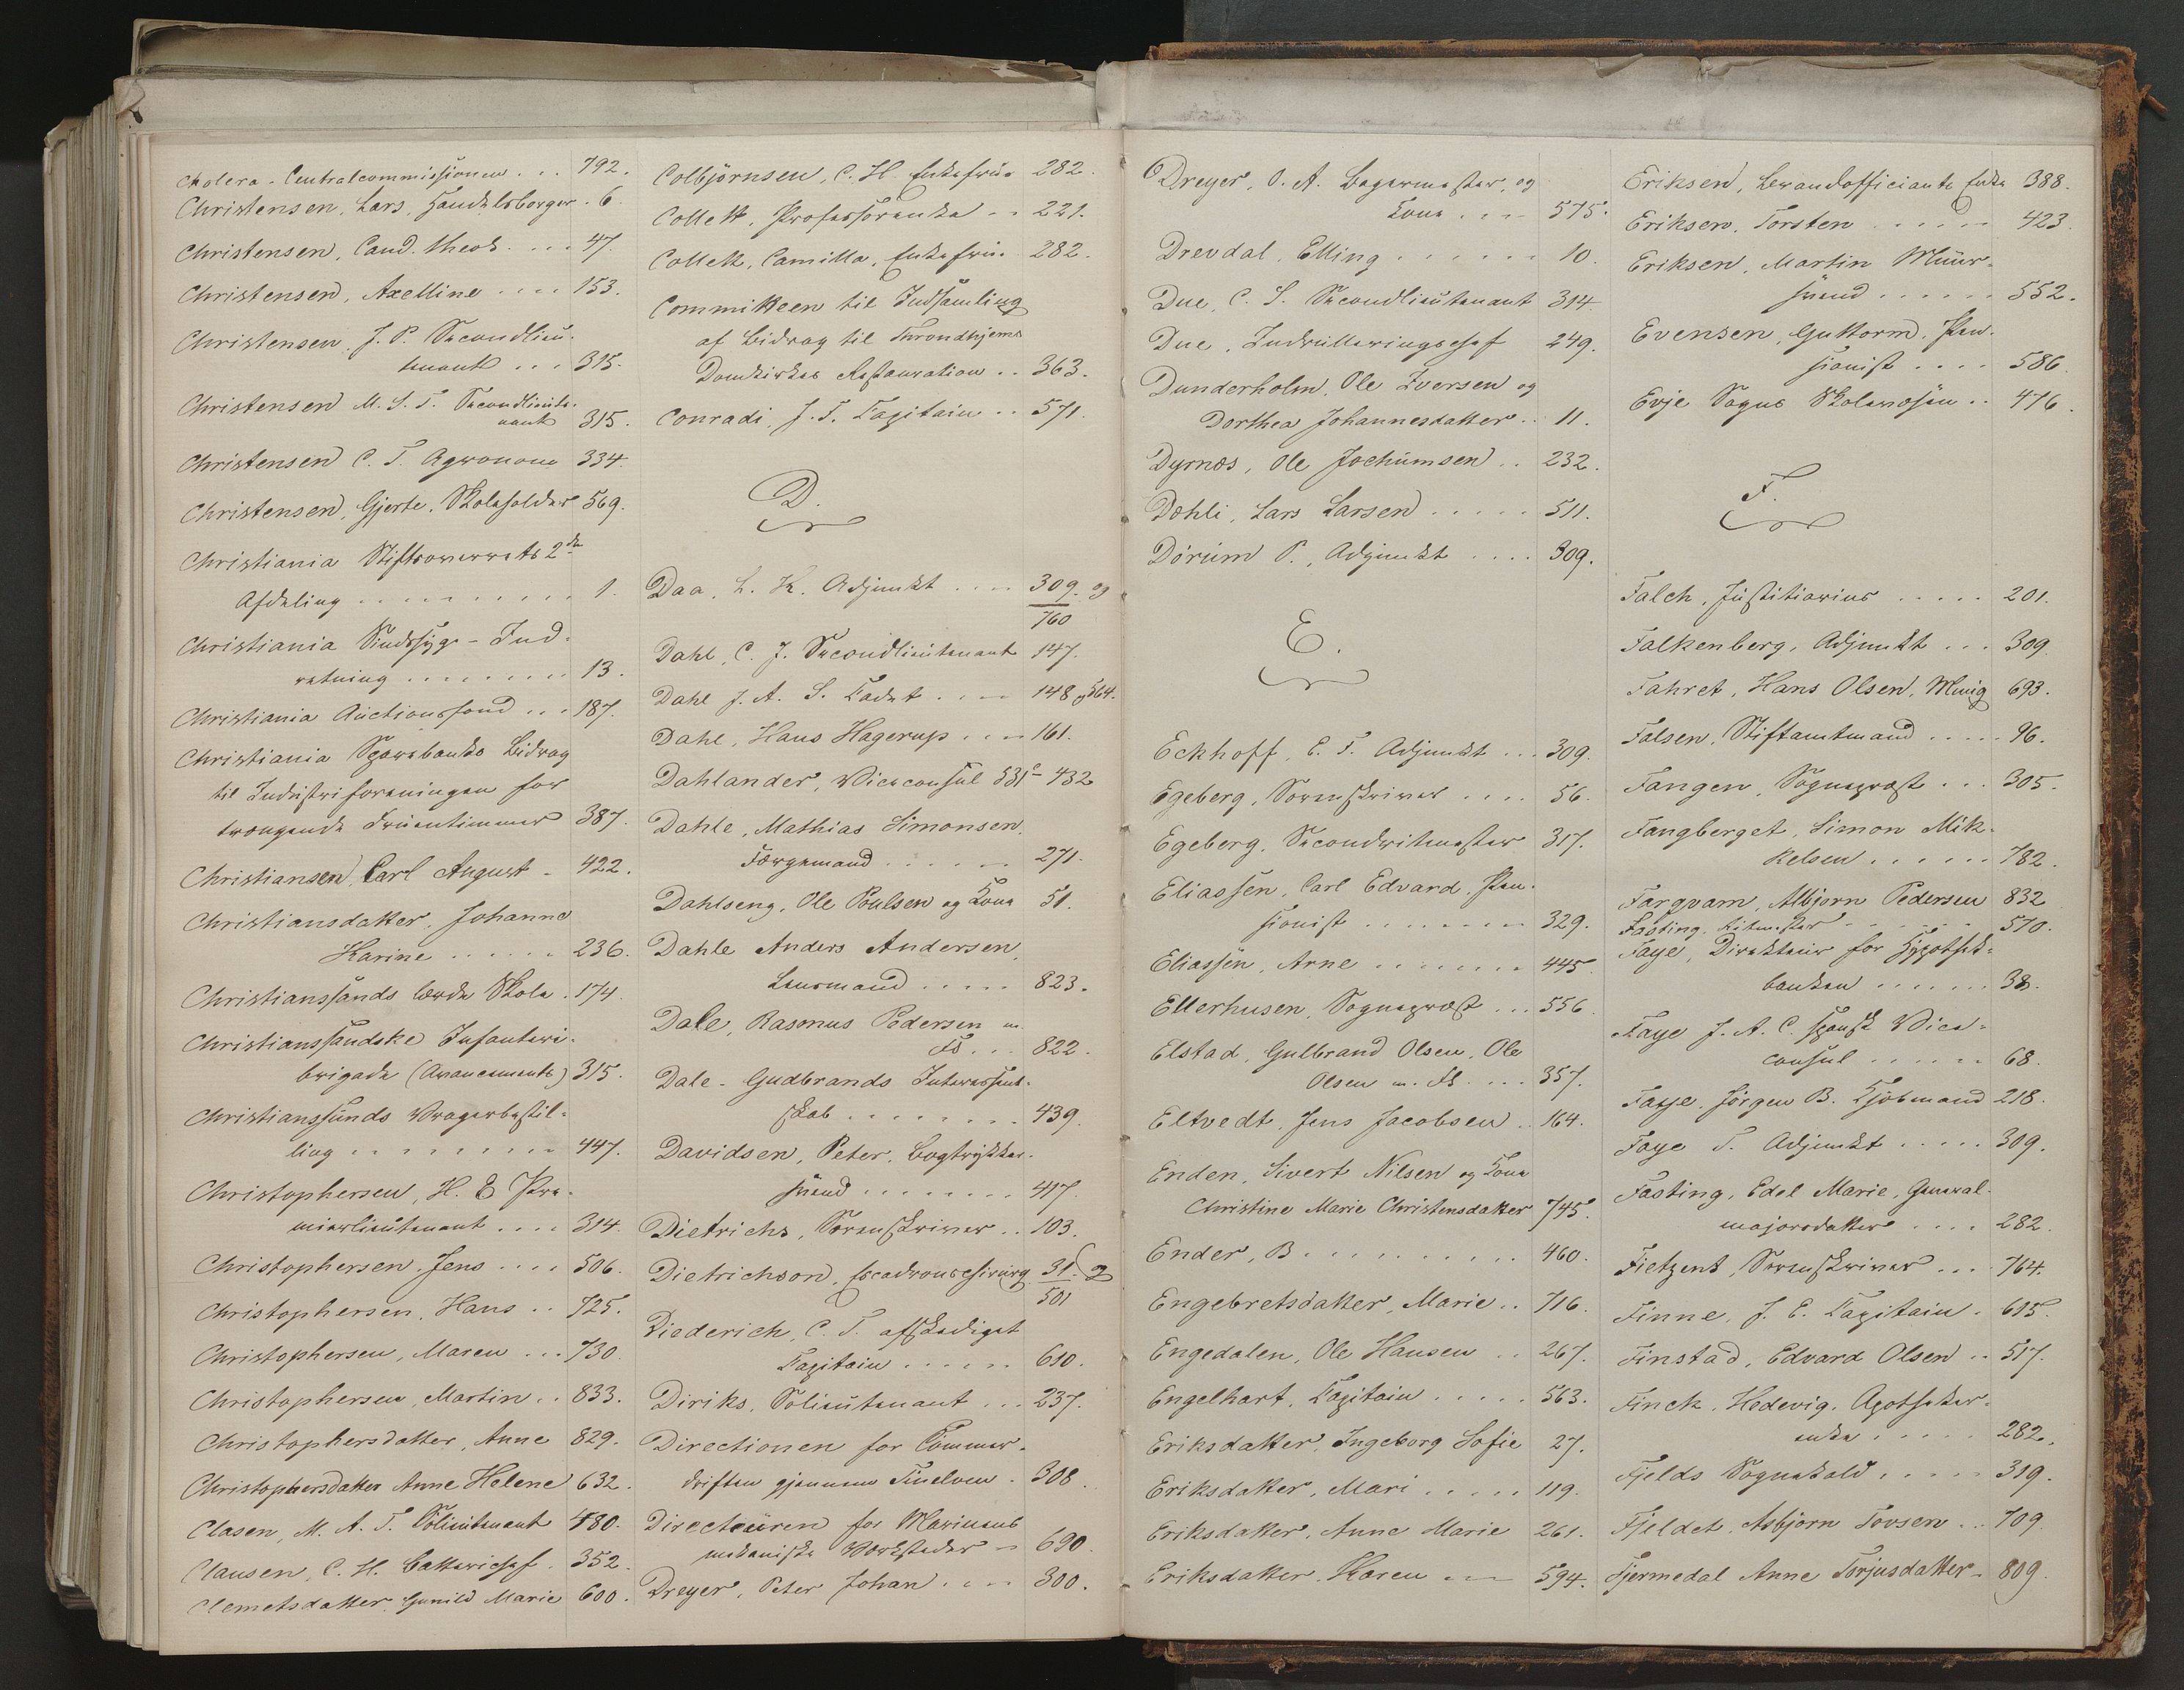 Cholera-Centralcommissionen . . . 792.
Christensen, Lars, Handelsborger . 6.
Christensen, Cand. theol. . . . 47.
Christensen, Axelline . . . . 153.
Christensen, J. P. Secondlieu-
tenant . . . 315.
Christensen M. S. T. Secondlieute-
nant 315.
Christensen C. T. Agronom 334.
Christensen, Gjerte, Skoleholder 569.
Christiania Stiftsoverrets 2den
Afdeling . . . . . . . . . 1.
Christiania Sindssyge-Ind-
retning . . . . . . . . 13.
Christiania Auctionsfond . . . 187.
Christiania Sparebanks Bidrag
til Industriforeningen for
trængende Fruentimmer 387.
Christiansen, Carl August - 422.
Christiansdatter, Johanne
Karine . . . . . . 236.
Christianssands lærde Skole . 174.
Christianssandske Infanteri-
brigade (Avancements) 315.
Christianssunds Vragerbestil-
ling . . . . . . . . . 447.
Christophersen, H. E Pre-
mierlieutenant . . . . 314.
Christophersen, Jens . . . . 506.
Christophersen, Hans . . 725.
Christophersen, Maren . . . 730.
Christophersen, Martin . . 833.
Christophersdatter, Anne 829.
Christophersdatter Anne Helene 632.
Clasen, M. A. T. Solieutenant 480.
Clausen, C. H. Batterichef . 352.
Clemetsdatter, Gunild Marie 600.
Colbjørnsen, C. H. Enkefrue 282.
Collett, Professorenke . . 221.
Collett, Camilla, Enkefrue 282.
Committeen til Indsamling
af Bidrag til Throndhjems
Domkirkes Restauration . . 363.
Conradi, J. F. Capitain . . 571.
D.
Daa, L. K. Adjunkt . . . . 309. og
760
Dahl, C. J. Secondlieutenant 147.
Dahl J. A. S. Cadet . . . . 148 og 564.
Dahl, Hans Hagerup . . . . 161.
Dahlander, Viceconsul 431 - 432
Dahle, Mathias Simonsen,
Færgemand . . . . . . 271.
Dahlseng, Ole Poulsen og Kone 51.
Dahle Anders Andersen,
Lensmand . . . . . 823.
Dale, Rasmus Pedersen m.
Fl. . . 822.
Dale-Gudbrands Interessent-
skab . . . . . . . . 439.
Davidsen, Peter, Bogtrykker-
svend . . . . . . . . 417.
Dietrichs, Sorenskriver . . 103.
Dietrichson, Escadronschirurg 31. og
501
Diederich, C. T. afskediget
Capitain . . . . . . 610.
Diriks, Solieutenant . . . 237.
Directionen for Tømmer-
driften gjennem Tinelven . 308.
Directeuren for Marinens
mekaniske Værksteder - 690.
Dreyer, Peter Johan . . . . 300.
Dreyer, O. A. Bagermester, og
Kone . . . . 575.
Drevdal, Elling . . . . . . . 10.
Due, C. S. Secondlieutenant 314.
Due, Indrulleringschef 249.
Dunderholm, Ole Iversen og
Dorthea Johannesdatter . . 11.
Dyrnæs, Ole Jochumsen . . 232.
Døhli, Lars Larsen . . . . . 511.
Dørum P., Adjunkt . . . . 309.
E.
Eckhoff, E. F. Adjunkt . . . 309.
Egeberg, Sorenskriver . . . . 56.
Egeberg, Secondritmester 317.
Eliassen, Carl Edvard, Pen-
sionist . . . . . . . . 329.
Eliassen, Arne . . . . . . . . 445.
Ellerhusen, Sogneprest . . . 556.
Elstad, Gulbrand Olsen, Ole
Olsen m. Fl. . . . 357.
Eltvedt, Jens Jacobsen . . 164.
Enden, Sivert Nilsen og Kone
Christine Marie Christensdatter 745.
Ender, B . . . . . . . . . . 460.
Engebretsdatter, Marie . . 716.
Engedalen, Ole Hansen . . 267.
Engelhart, Capitain . . . . . 563.
Eriksdatter, Ingeborg Sofie 27.
Eriksdatter, Mari . . . . . 119.
Eriksdatter, Anne Marie 261.
Eriksdatter, Karen . . . 594.
Eriksen, Brandofficiants Enke 388.
Eriksen, Torsten . . . . . . 423.
Eriksen, Martin Muur-
svend . . . . . . 552.
Evensen, Guttorm, Pen-
sionist . . . . 586.
Evje Sogns Skolevæsen . . 476.
F.
Falch, Justitiarius . . . . . 201.
Falkenberg, Adjunkt . . . 309.
Fahret, Hans Olsen, Menig 693.
Falsen, Stiftamtmand . . . . . 96.
Fangen, Sogneprest . . . 305.
Fangberget, Simon Mik-
kelsen . . . . . . 782.
Fargvam, Albjørn Pedersen 832
Fasting, Ritmester . . . . . . 570.
Faye, Direkteur for Hypothek-
banken . . . . . . . 38.
Faye J. A. C. spansk Vice-
consul . . . . . . 68.
Faye, Jørgen B. Kjøbmand 218.
Faye T. Adjunkt . . . . . 309.
Fasting, Edel Marie, General-
majorsdatter . . . . 282.
Fietzent, Sorenskriver . . . 764.
Finne, J. E. Capitain . 615.
Finstad, Edvard Olsen . . 517.
Finck, Hedevig, Apotheker-
enke . . . . . 282.
Fjelds Sognekald . . . . . 319.
Fjeldet, Asbjørn Tovsen . . 709.
Fjermedal Anne Torjusdatter - 809.